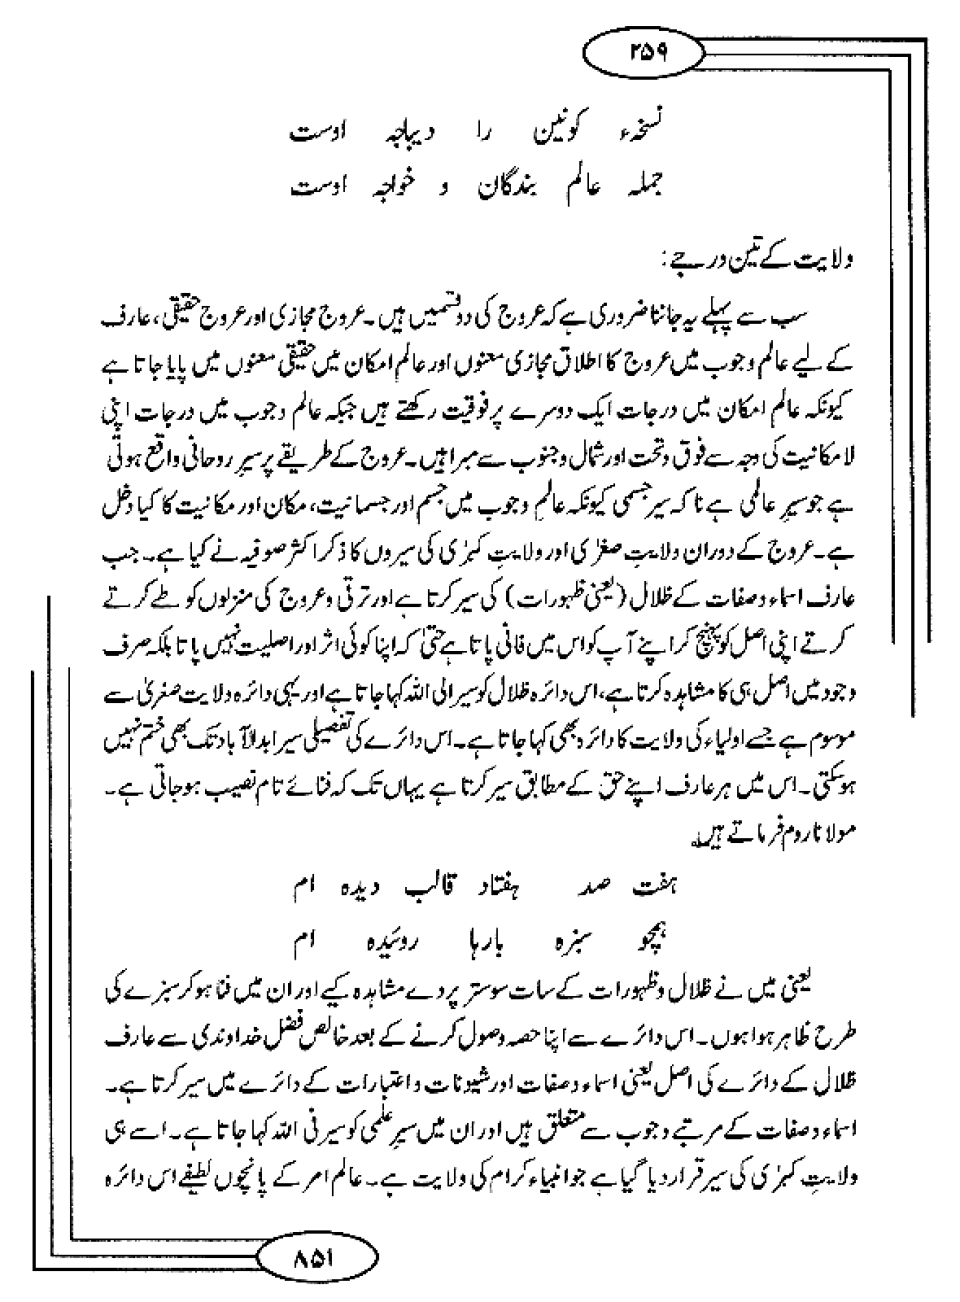 ۲۵۹
نسخہء کونین را دیباچہ اوست
جملہ عالم بندگان و خواجہ اوست
ولایت کے تین درجے:
سب سے پہلے یہ جاننا ضروری ہے کہ عروج کی دو قسمیں ہیں۔ عروج مجازی اور عروج حقیقی، عارف
کے لیے عالم وجوب میں عروج کا اطلاق مجازی معنوں اور عالم امکان میں حقیقی معنوں میں پایا جاتا ہے
کیونکہ عالم امکان میں درجات ایک دوسرے پر فوقیت رکھتے ہیں جبکہ عالم وجوب میں درجات اپنی
لامکانیت کی وجہ سے فوق و تحت اور شمال و جنوب سے مبرا ہیں۔ عروج کے طریقے پر سیرِ روحانی واقع ہوتی
ہے جو سیرِ عالمی ہے نا کہ سیر جسمی کیونکہ عالمِ وجوب میں جسم اور جسمانیت، مکان اور مکانیت کا کیا دخل
ہے۔ عروج کے دوران ولایتِ صغرٰی اور ولایتِ کبرٰی کی سیروں کا ذکر اکثر صوفیہ نے کیا ہے۔ جب
عارف اسماء و صفات کے ظلال (یعنی ظہورات) کی سیر کرتا ہے اور ترقی و عروج کی منزلوں کو طے کرتے
کرتے اپنی اصل کو پہنچ کر اپنے آپ کو اس میں فانی پاتا ہے حتیٰ کہ اپنا کوئی اثر اور اصلیت نہیں پاتا بلکہ صرف
وجود میں اصل ہی کا مشاہدہ کرتا ہے، اس دائرہ ظلال کو سیر الی اللہ کہا جاتا ہے اور یہی دائرہ ولایت صغریٰ سے
موسوم ہے جسے اولیاء کی ولایت کا دائرہ بھی کہا جاتا ہے۔ اس دائرے کی تفصیلی سیر ابدالآباد تک بھی ختم نہیں
ہوسکتی۔ اس میں ہر عارف اپنے حق کے مطابق سیر کرتا ہے یہاں تک کہ فنائے تام نصیب ہو جاتی ہے۔
مولانا روم فرماتے ہیں۔
ہفت صد ہفتاد قالب دیدہ ام
ہمچو سبزہ بارہا روئیدہ ام
یعنی میں نے ظلال و ظہورات کے سات سو ستر پردے مشاہدہ کیے اور ان میں فنا ہو کر سبزے کی
طرح ظاہر ہوا ہوں۔ اس دائرے سے اپنا حصہ وصول کرنے کے بعد خالص فضل خداوندی سے عارف
ظلال کے دائرے کی اصل یعنی اسماء و صفات اور شیونات و اعتبارات کے دائرے میں سیر کرتا ہے۔
اسماء و صفات کے مرتبے وجوب سے متعلق ہیں اور ان میں سیرِ علمی کو سیر فی اللہ کہا جاتا ہے۔ اسے ہی
ولایتِ کبرٰی کی سیر قرار دیا گیا ہے جو انبیاء کرام کی ولایت ہے۔ عالم امر کے پانچوں لطیفے اس دائرہ
۸۵۱